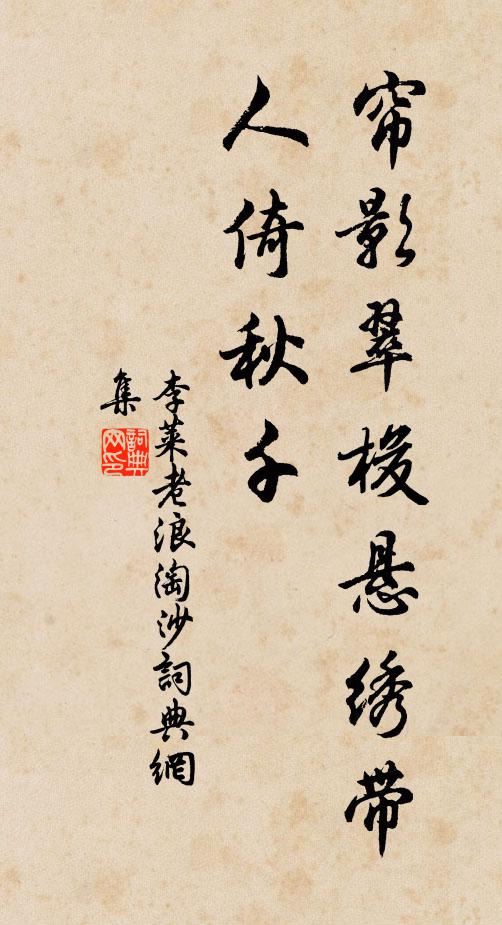 帘影翠梭悬绣带
人倚秋千
李莱老浪淘沙詞典網
集
詞典网印